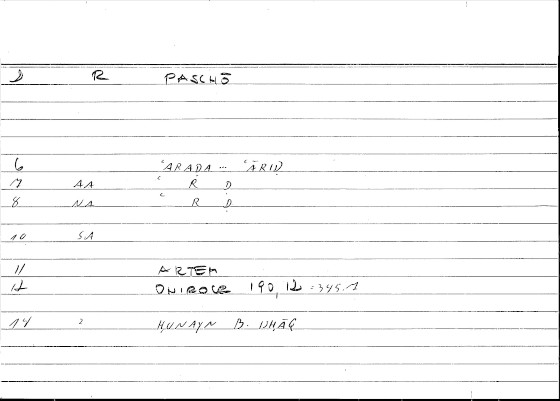 D R PASCHŌ
6 ʿARAḌA ... ʿĀRIḌ
7 AA ʿ R Ḍ
8 NA ʿ R Ḍ
10 SA
11 ARTEM
12 ONIROCR 190, 12 = 345.1
14 2 ḤUNAYN B. ISḤĀQ